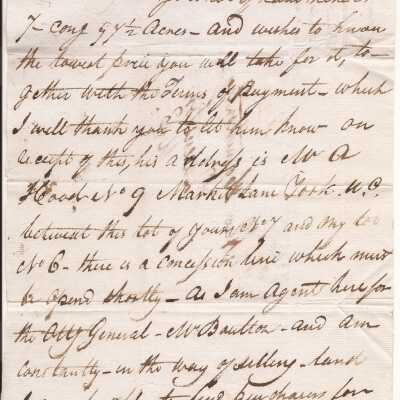 7 - cong 97½ Acres - and wishes to know
the lowest price you will take for it, to
gether with the Terms of payment - which
I will thank you to let him know - on
receipt of this, his address is Mr A
Hood No 9 Market Lane York. U.C.
betwixt this lot of yours No 7 and my lot
No 6 - there is a concession line which must
be opend shortly - as I am Agent here for
the Atty General - Mr Boulton - and am
constantly - in the way of selling - land